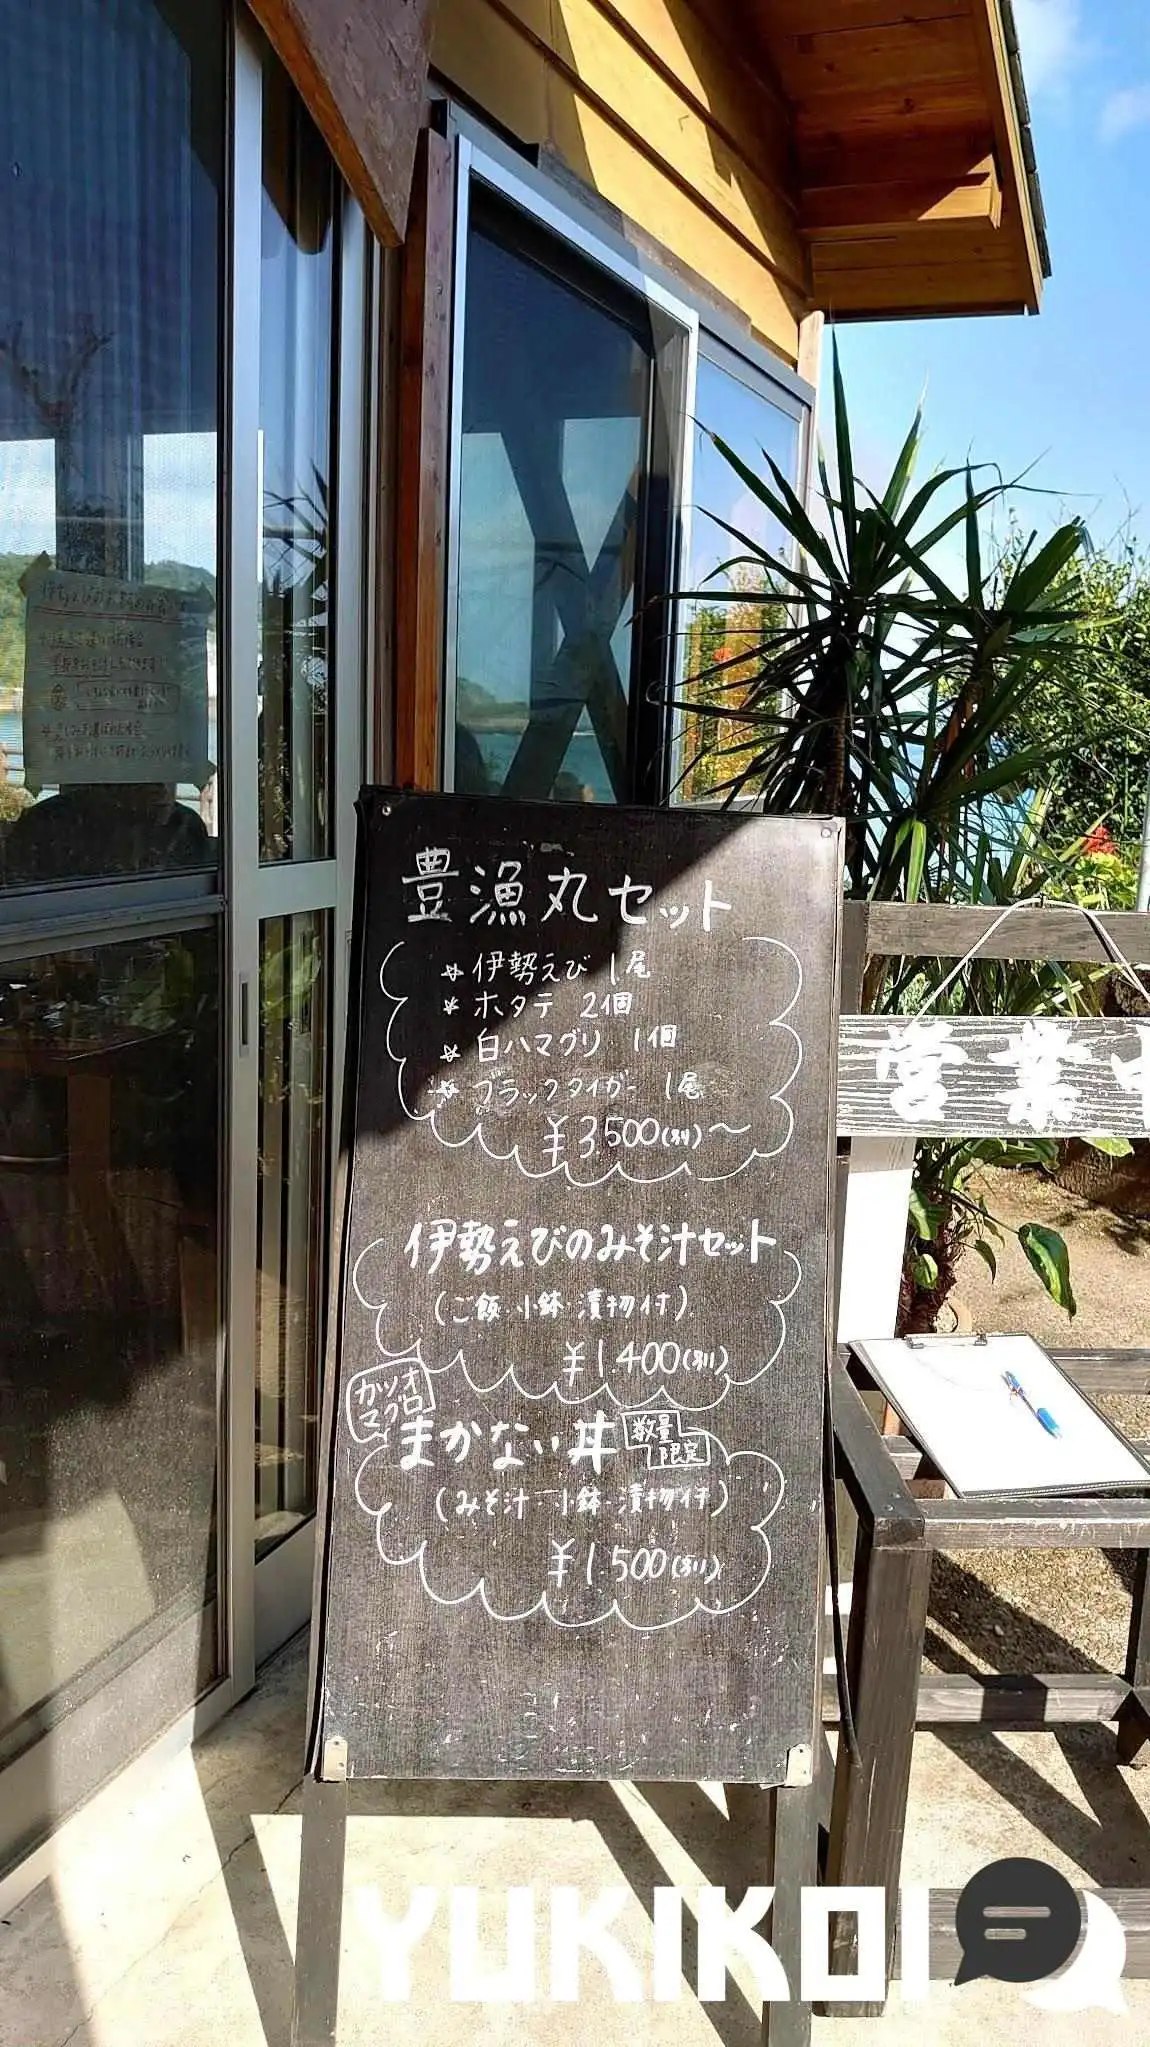 豊漁丸セット
伊勢えび 1尾
ホタテ 2個
白ハマグリ 1個
ブラックタイガー 1尾
¥3500(別)〜
伊勢えびのみそ汁セット
(ご飯・小鉢・漬物付)
¥1.400(別)
カツオ
マグロ
まかない丼
数量
限定
(みそ汁・小鉢・漬物付)
¥1.500(別)
営業中
YUKIKOI